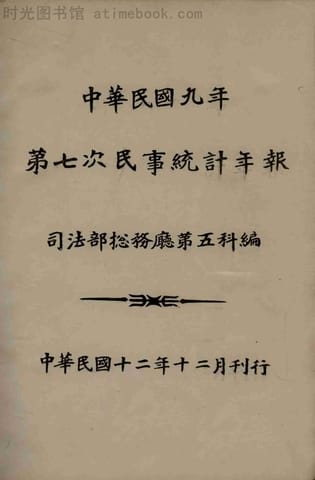 时光图书馆 - atimebook.com
中華民國九年
第七次民事統計年報
司法部総務廳第五科編
中華民國十二年十二月刊行